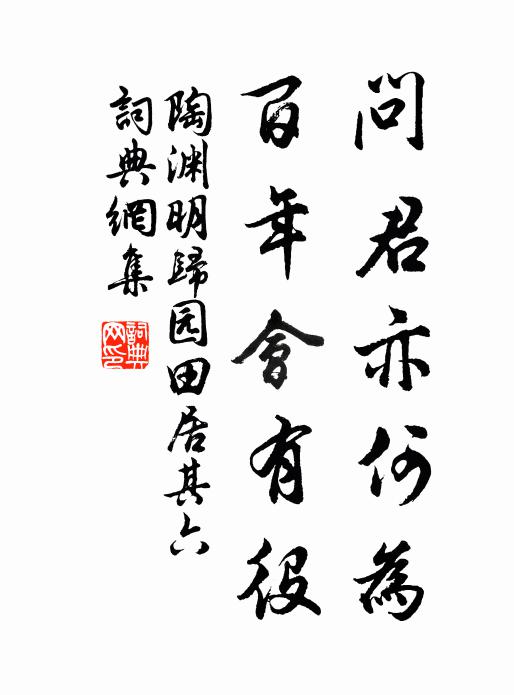 問君亦何為
百年會有役
陶渊明歸园田居其六
詞典網集
詞典网印